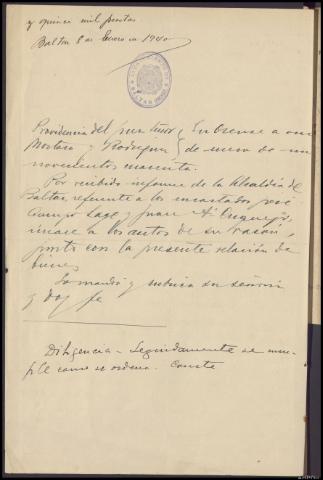 y quince mil pesetas
Baltar 8 de Enero de 1940
Providencia del juez Señor
Montero y Rodriguez
de enero de mil
novecientos cuarenta.
Por recibido informe de la Alcaldía de
Baltar, referente a los encartados José
Campo Lago y Juan
únase a los autos de su razón,
junto con la presente relación de
bienes
Lo mandó y rubrica su señoria
y doy fe
Diligencia - Seguidamente se cum-
ple como se ordena. Conste